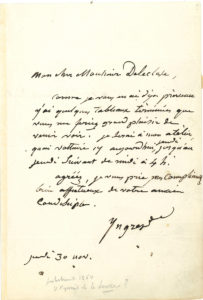 Mon cher Monsieur Delécluze,
comme je vous ai dit
j'ai quelques tableaux terminés que
vous me ferez grand plaisir de
venir voir. je serai à mon atelier
quai voltaire 17 aujourd'hui jeudi jusqu'au
jeudi suivant de midi à 4 h.
agréez, je vous prie, les compliments
bien affectueux de votre ancien
Condisciple
Ingres
jeudi 30 nov.